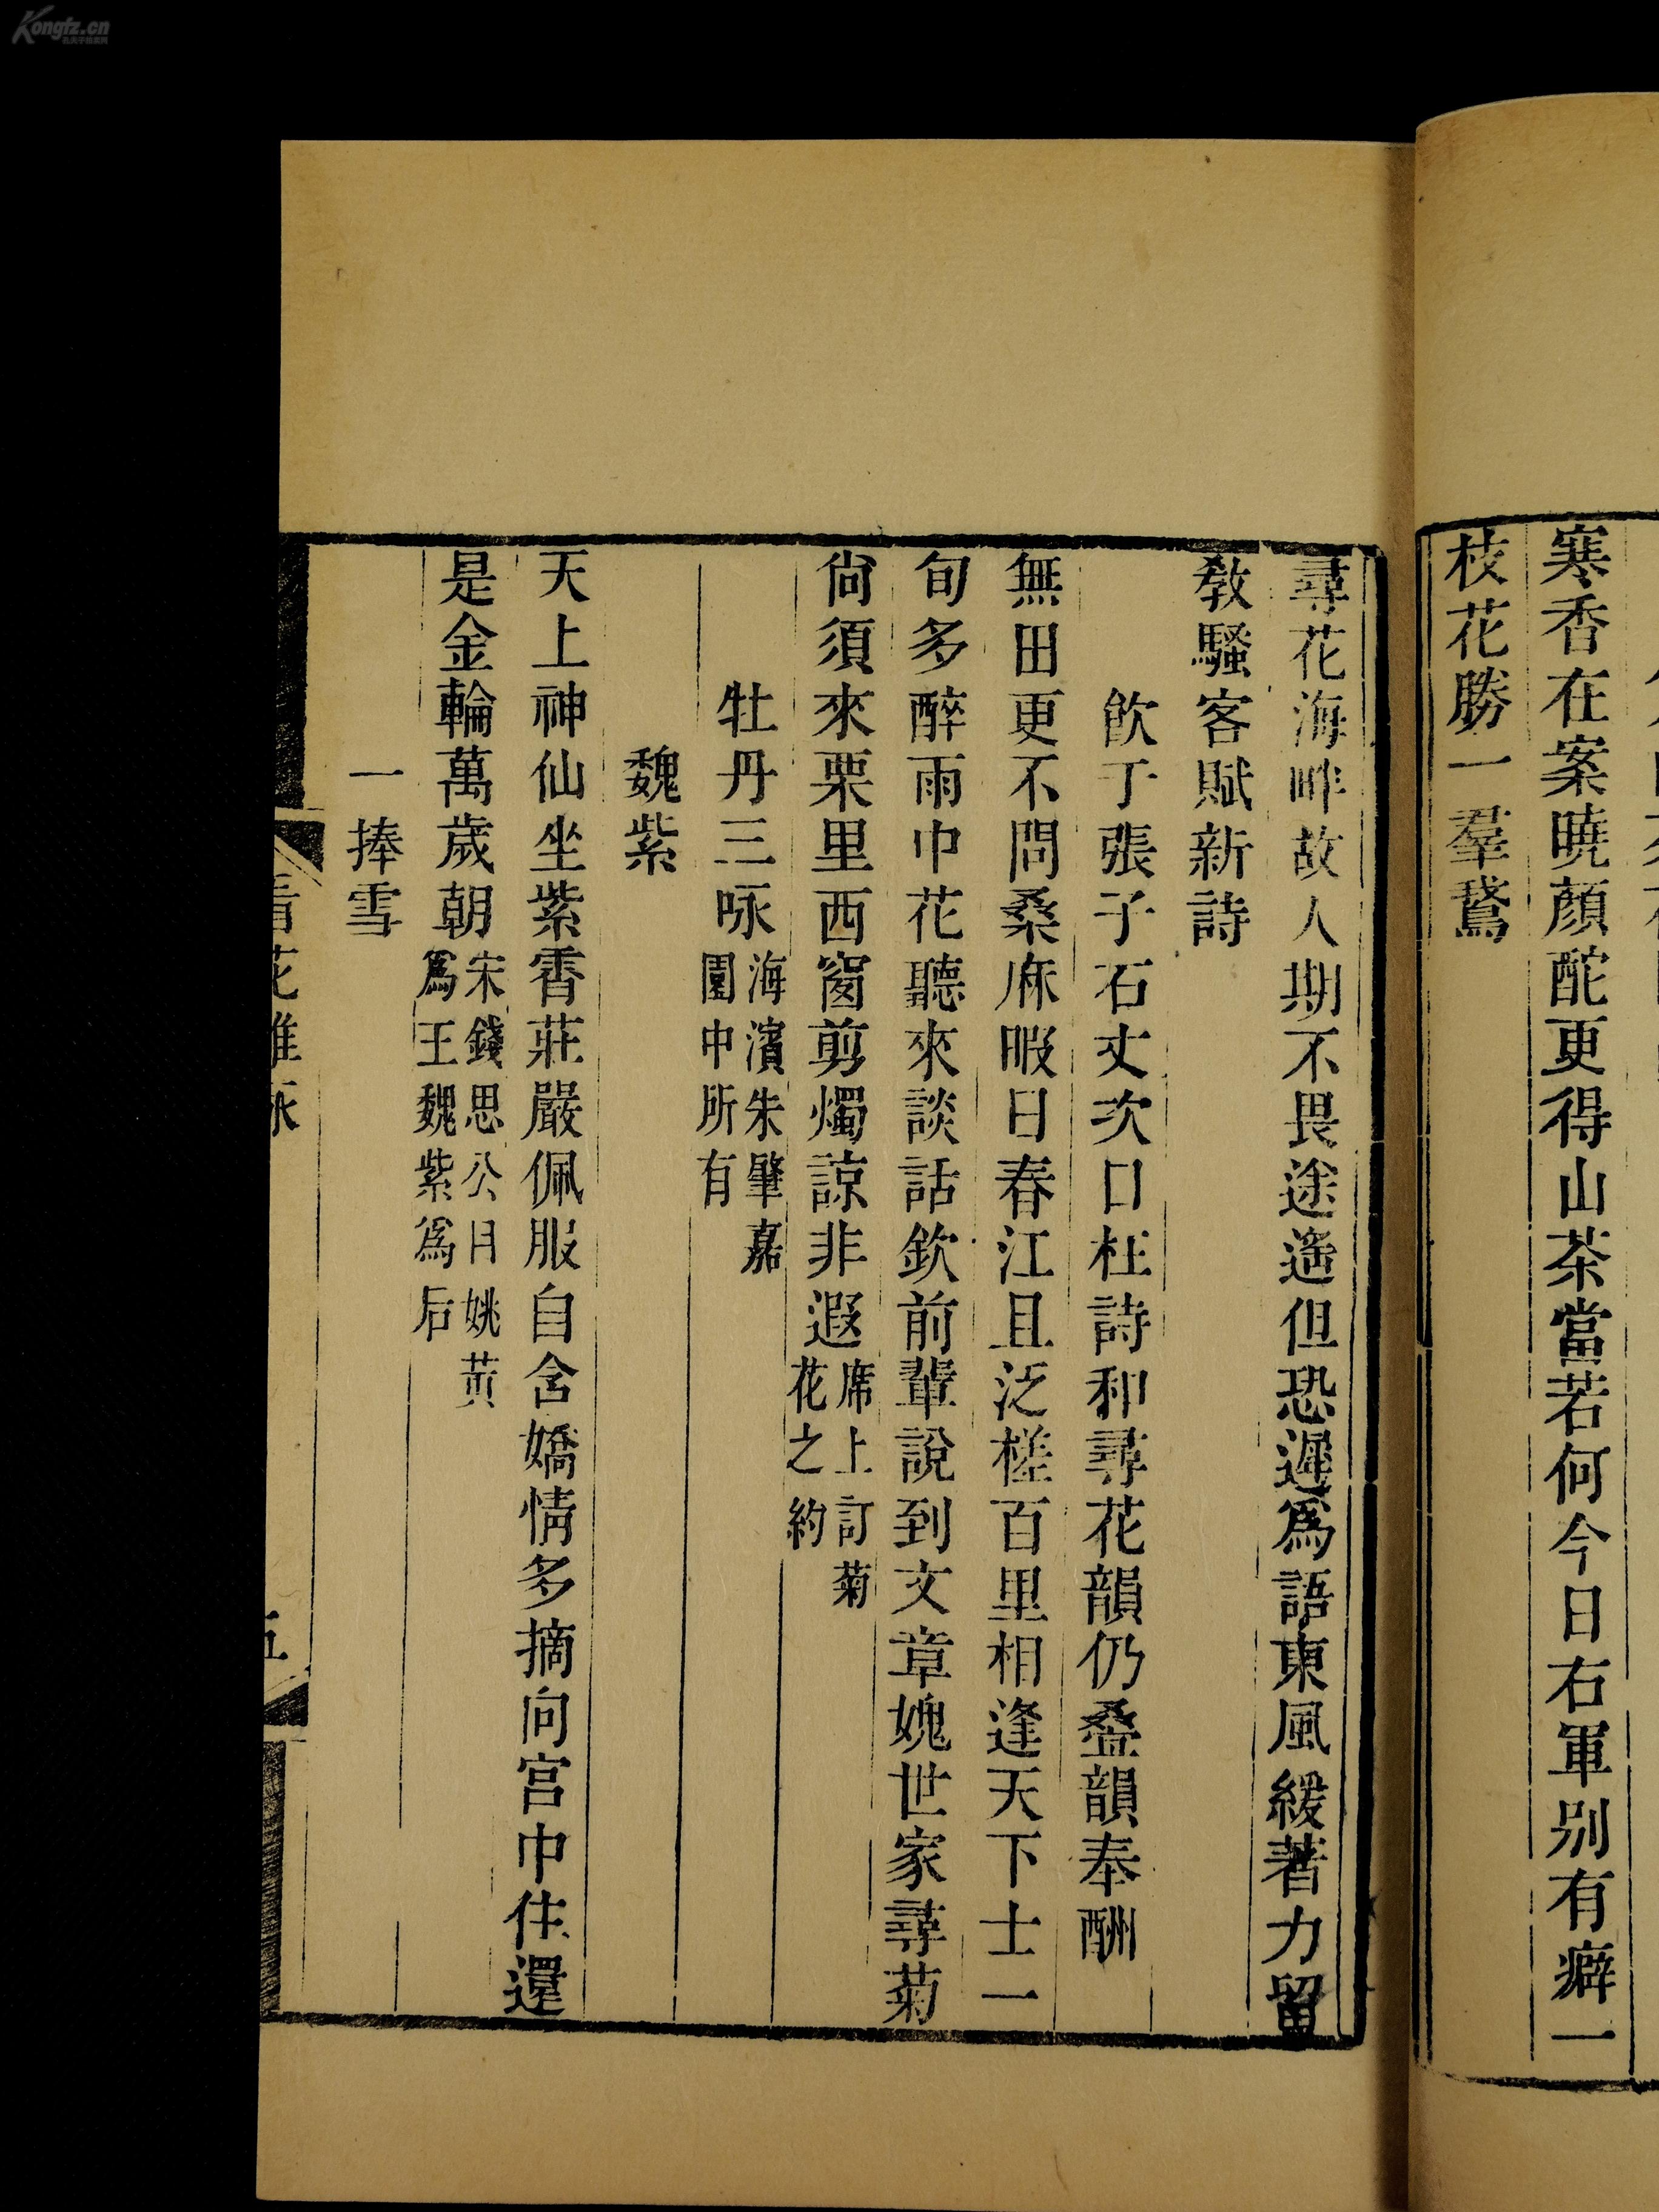 寒香在案曉顏酡更得山茶當若何今日右軍別有癖一
枝花勝一羣鵞
尋花海畔故人期不畏途遙但恐遲爲語東風緩著力留
教騷客賦新詩
飲丁張子石丈次口枉詩和尋花韻仍叠韻奉酬
無田更不問桑麻暇日春江且泛槎百里相逢天下士一
旬多醉雨巾花聽來談話欽前輩說到文章媿世家尋菊
尙須來栗里西窗剪燭諒非遐席上訂菊
花之約
牡丹三咏海濱朱肇嘉
園中所有
魏紫
天上神仙坐紫霄莊嚴佩服自含嬌情多摘向宮中住還
是金輪萬歲朝宋錢思公曰姚黃
爲王魏紫爲后
一捧雪
看花雜咏
五
Kongfz.cn